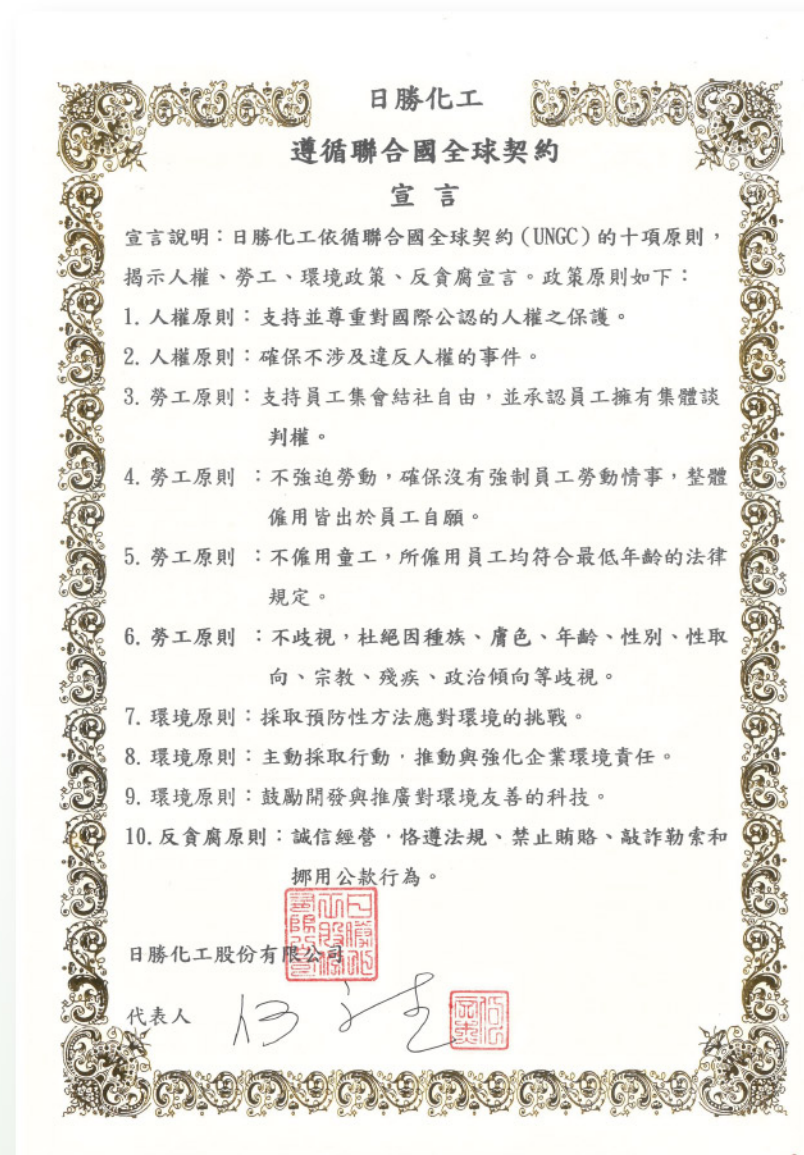 日勝化工
遵循聯合國全球契約
宣言
宣言說明：日勝化工依循聯合國全球契約(UNGC)的十項原則，
揭示人權、勞工、環境政策、反貪腐宣言。政策原則如下：
1. 人權原則：支持並尊重對國際公認的人權之保護。
2. 人權原則：確保不涉及違反人權的事件。
3. 勞工原則：支持員工集會結社自由，並承認員工擁有集體談
判權。
4. 勞工原則 ：不強迫勞動，確保沒有強制員工勞動情事，整體
僱用皆出於員工自願。
5. 勞工原則 ：不僱用童工，所僱用員工均符合最低年齡的法律
規定。
6. 勞工原則 ：不歧視，杜絕因種族、膚色、年齡、性別、性取
向、宗教、殘疾、政治傾向等歧視。
7. 環境原則：採取預防性方法應對環境的挑戰。
8. 環境原則：主動採取行動，推動與強化企業環境責任。
9. 環境原則：鼓勵開發與推廣對環境友善的科技。
10. 反貪腐原則：誠信經營，恪遵法規、禁止賄賂、敲詐勒索和
挪用公款行為。
日勝化工股份有限公司
代表人